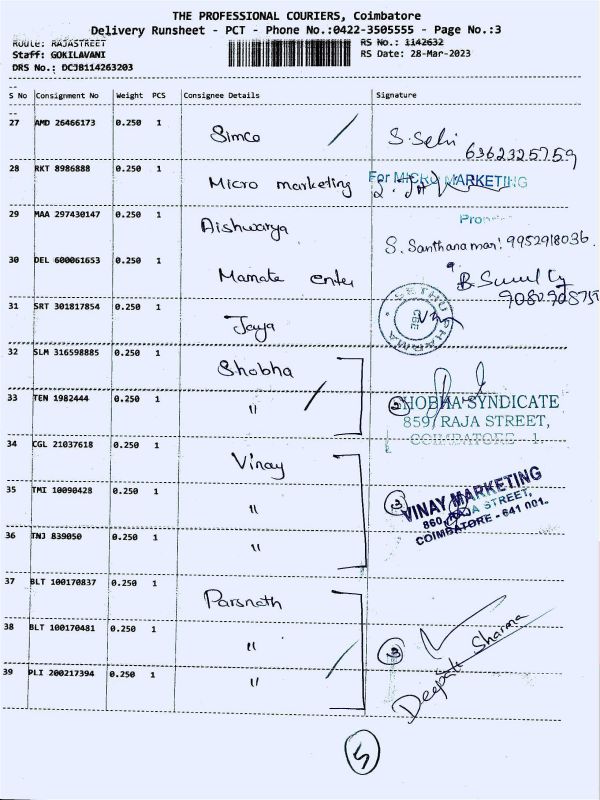 THE PROFESSIONAL COURIERS, Coimbatore
Delivery Runsheet - PCT - Phone No.:0422-3505555 - Page No.:3
Route: RAJASTREET
RS No.: 1142632
Staff: GOKILAVANI
RS Date: 28-Mar-2023
DRS No.: DCJB114263203
S No Consignment No Weight PCS Consignee Details Signature
27 AMD 26466173 0.250 1 Simco S. Selvi 6362325759
28 RKT 8986888 0.250 1 Micro marketing For MICRO MARKETING
29 MAA 297430147 0.250 1 Aishwarya
S. Santhanamari 9952918036
30 DEL 600061653 0.250 1 Mamate enter
31 SRT 301817854 0.250 1 Jaya SETHU PHARMA CBE
32 SLM 316598885 0.250 1 Shobha
33 TEN 1982444 0.250 1 " 2 SHOBHA SYNDICATE
859, RAJA STREET,
COIMBATORE - 1.
34 CGL 21037618 0.250 1 Vinay
35 TMI 10090428 0.250 1 " 3 VINAY MARKETING
860, RAJA STREET,
COIMBATORE - 641 001.
36 TNJ 839050 0.250 1 "
37 BLT 100170837 0.250 1 Parsnath
38 BLT 100170481 0.250 1 " 3
39 PLI 200217394 0.250 1 " Deepak Sharma
5